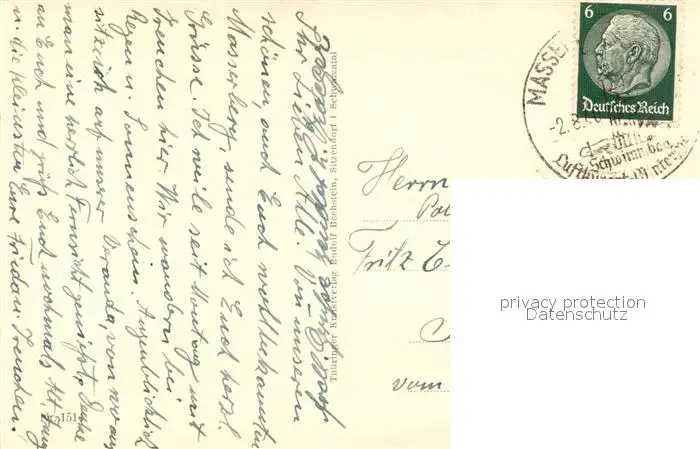 Ihr Lieben Alle. Von unserem
schönen, auch Euch wohlbekannten
Masserberg, sende ich Euch herzl.
Grüsse. Ich weile seit Montag mit
Trenchen hier. Wir wandern bei
Regen u. Sonnenschein. Augenblicklich
sitze ich auf unser Veranda, von wo aus
man eine herrlich Fernsicht genießt. Denke
an Euch und grüß Euch nochmals
u. die Kleinsten Eure Frieda u. Trenchen.
Nr. 1514
Thüringer Kunstverlag Rudolf Bechstein, Sitzendorf i Schwarzatal
6 6
Deutsches Reich
MASSE
-2.8.
Schwimmbad
Luftkurort
Herrn
Fritz
vom
privacy protection
Datenschutz